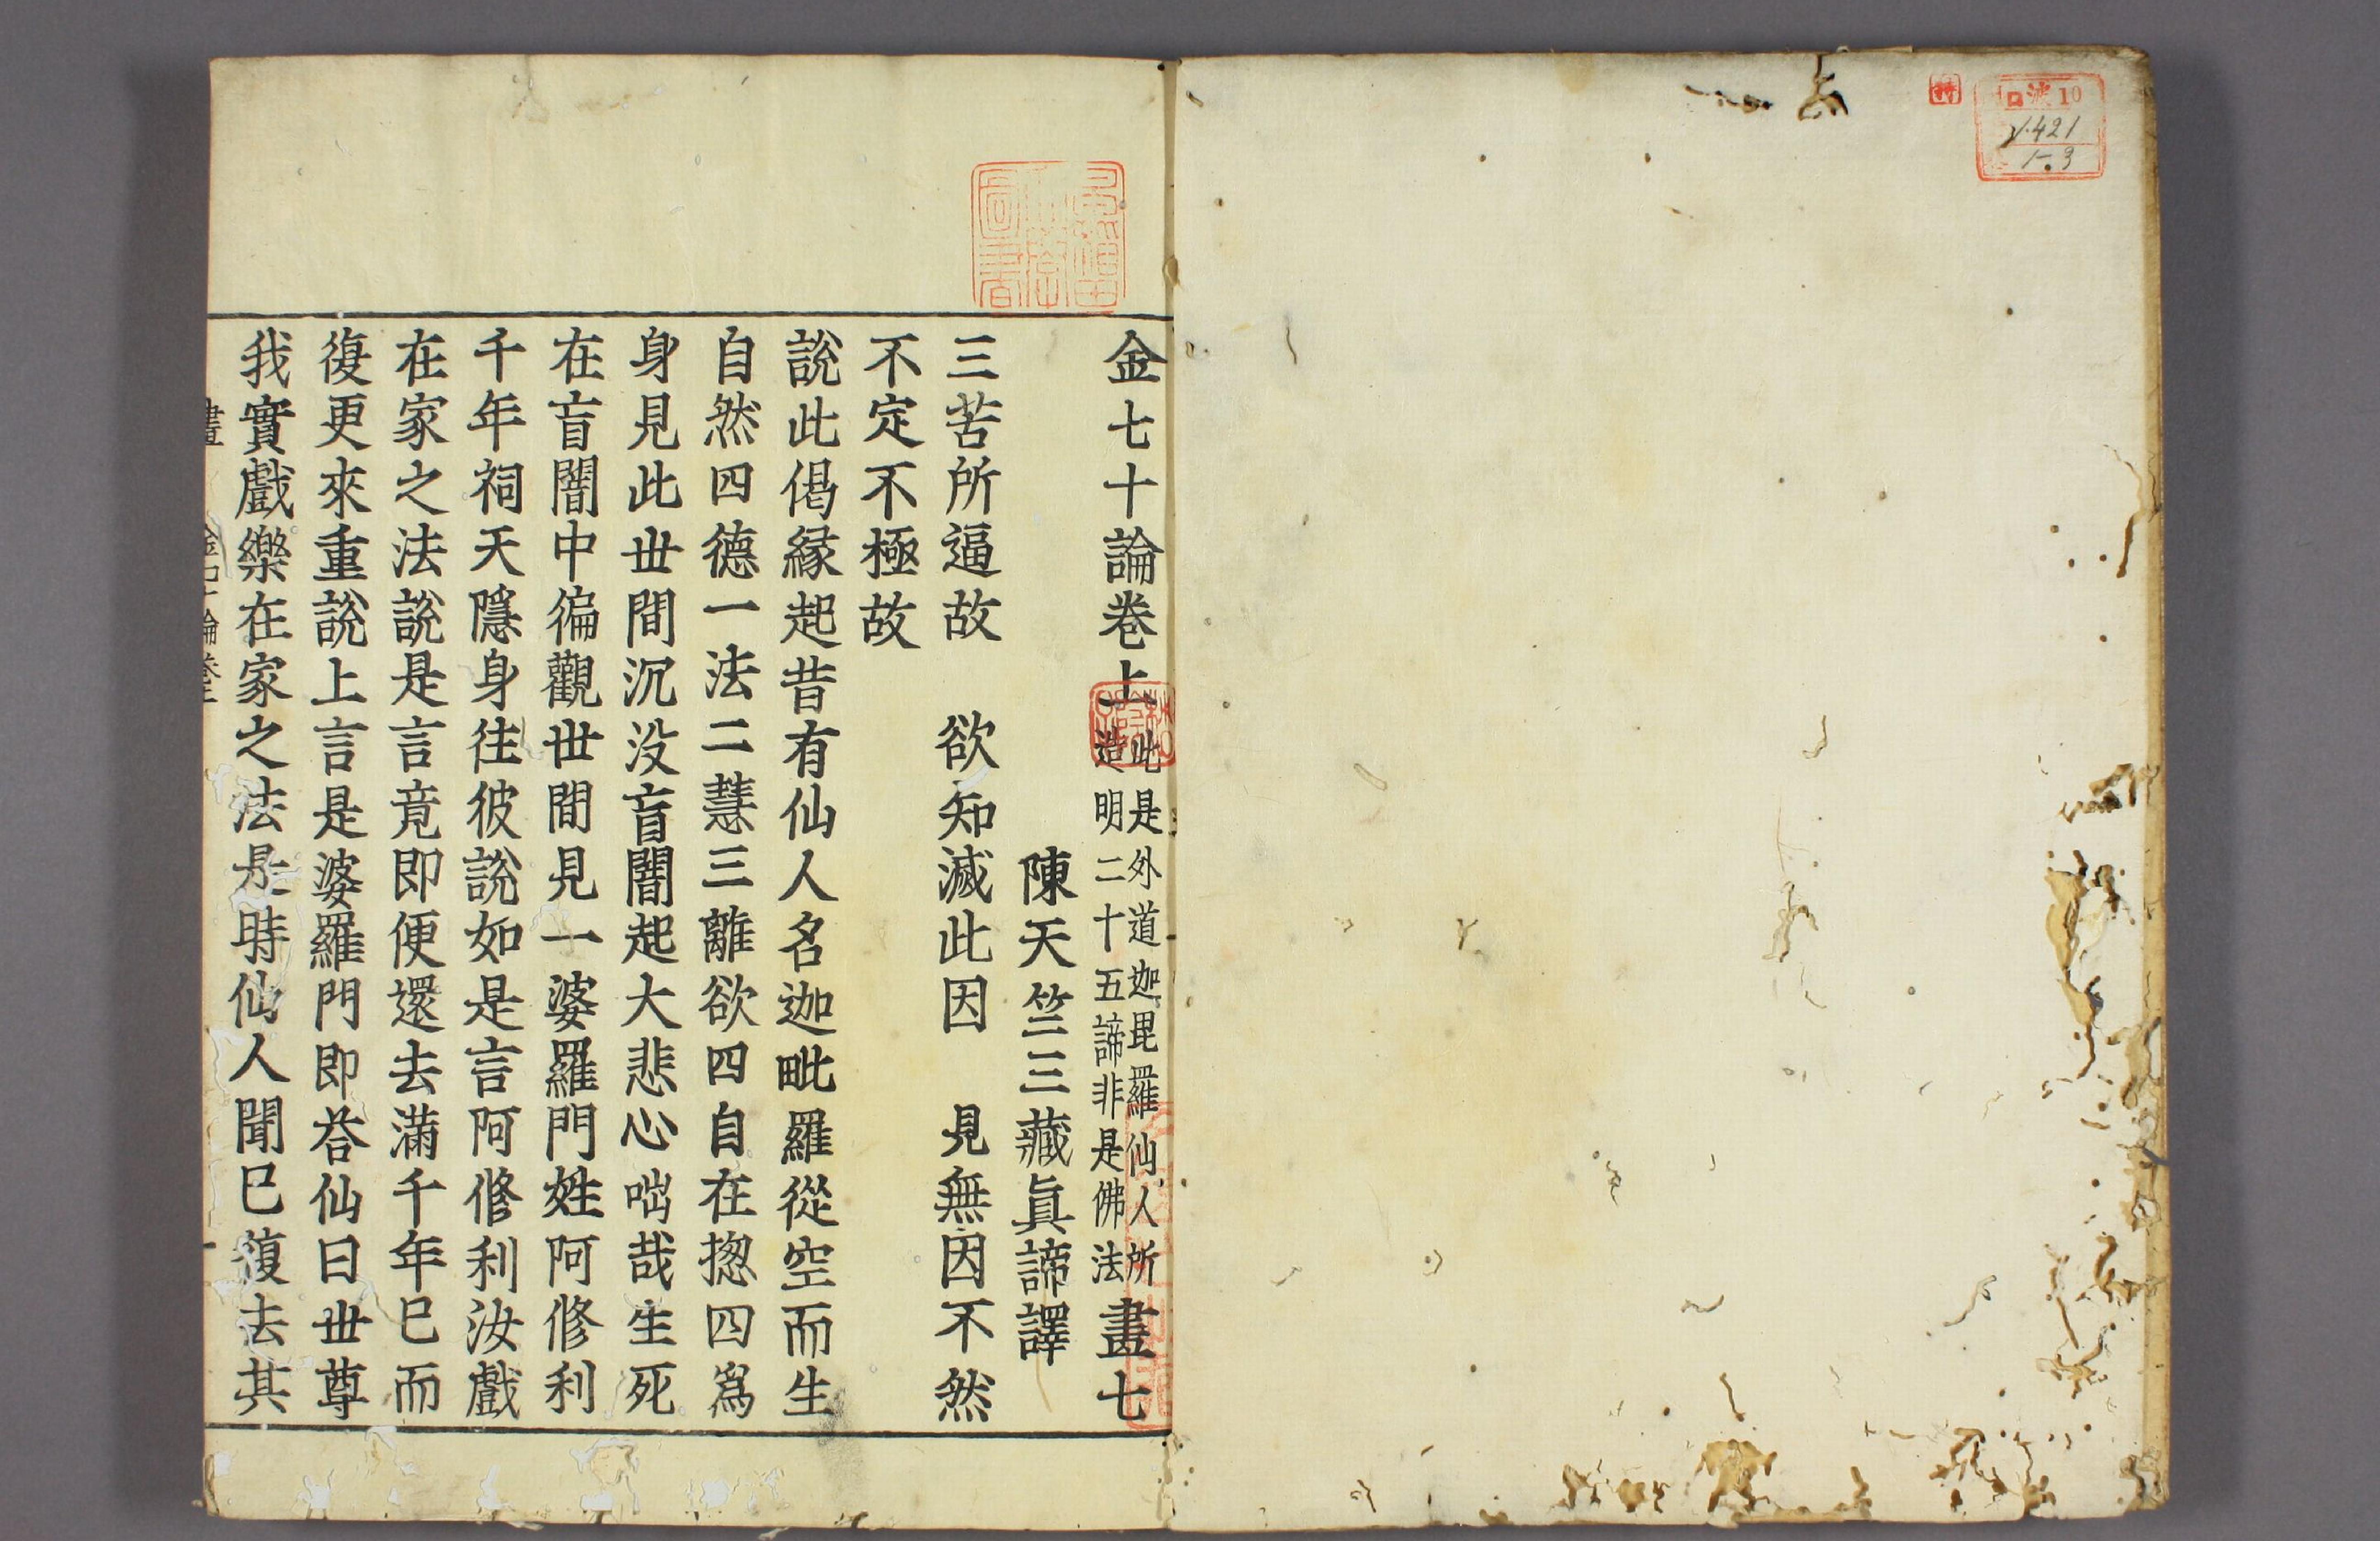 金七十論卷上 此是外道迦毘羅仙人所 晝七
造明二十五諦非是佛法
陳天竺三藏眞諦譯
三苦所逼故 欲知滅此因 見無因不然
不定不極故
說此偈緣起昔有仙人名迦毗羅從空而生
自然四德一法二慧三離欲四自在揔四爲
身見此丗間沉没盲闇起大悲心咄哉生死
在盲闇中徧觀丗間見一婆羅門姓阿修利
千年祠天隱身徃彼說如是言阿修利汝戲
在家之法說是言竟即便還去滿千年巳而
復更來重說上言是婆羅門即荅仙曰丗尊
我實戲樂在家之法是時仙人聞巳復去其
晝 金七十論卷上
10
421
1-3